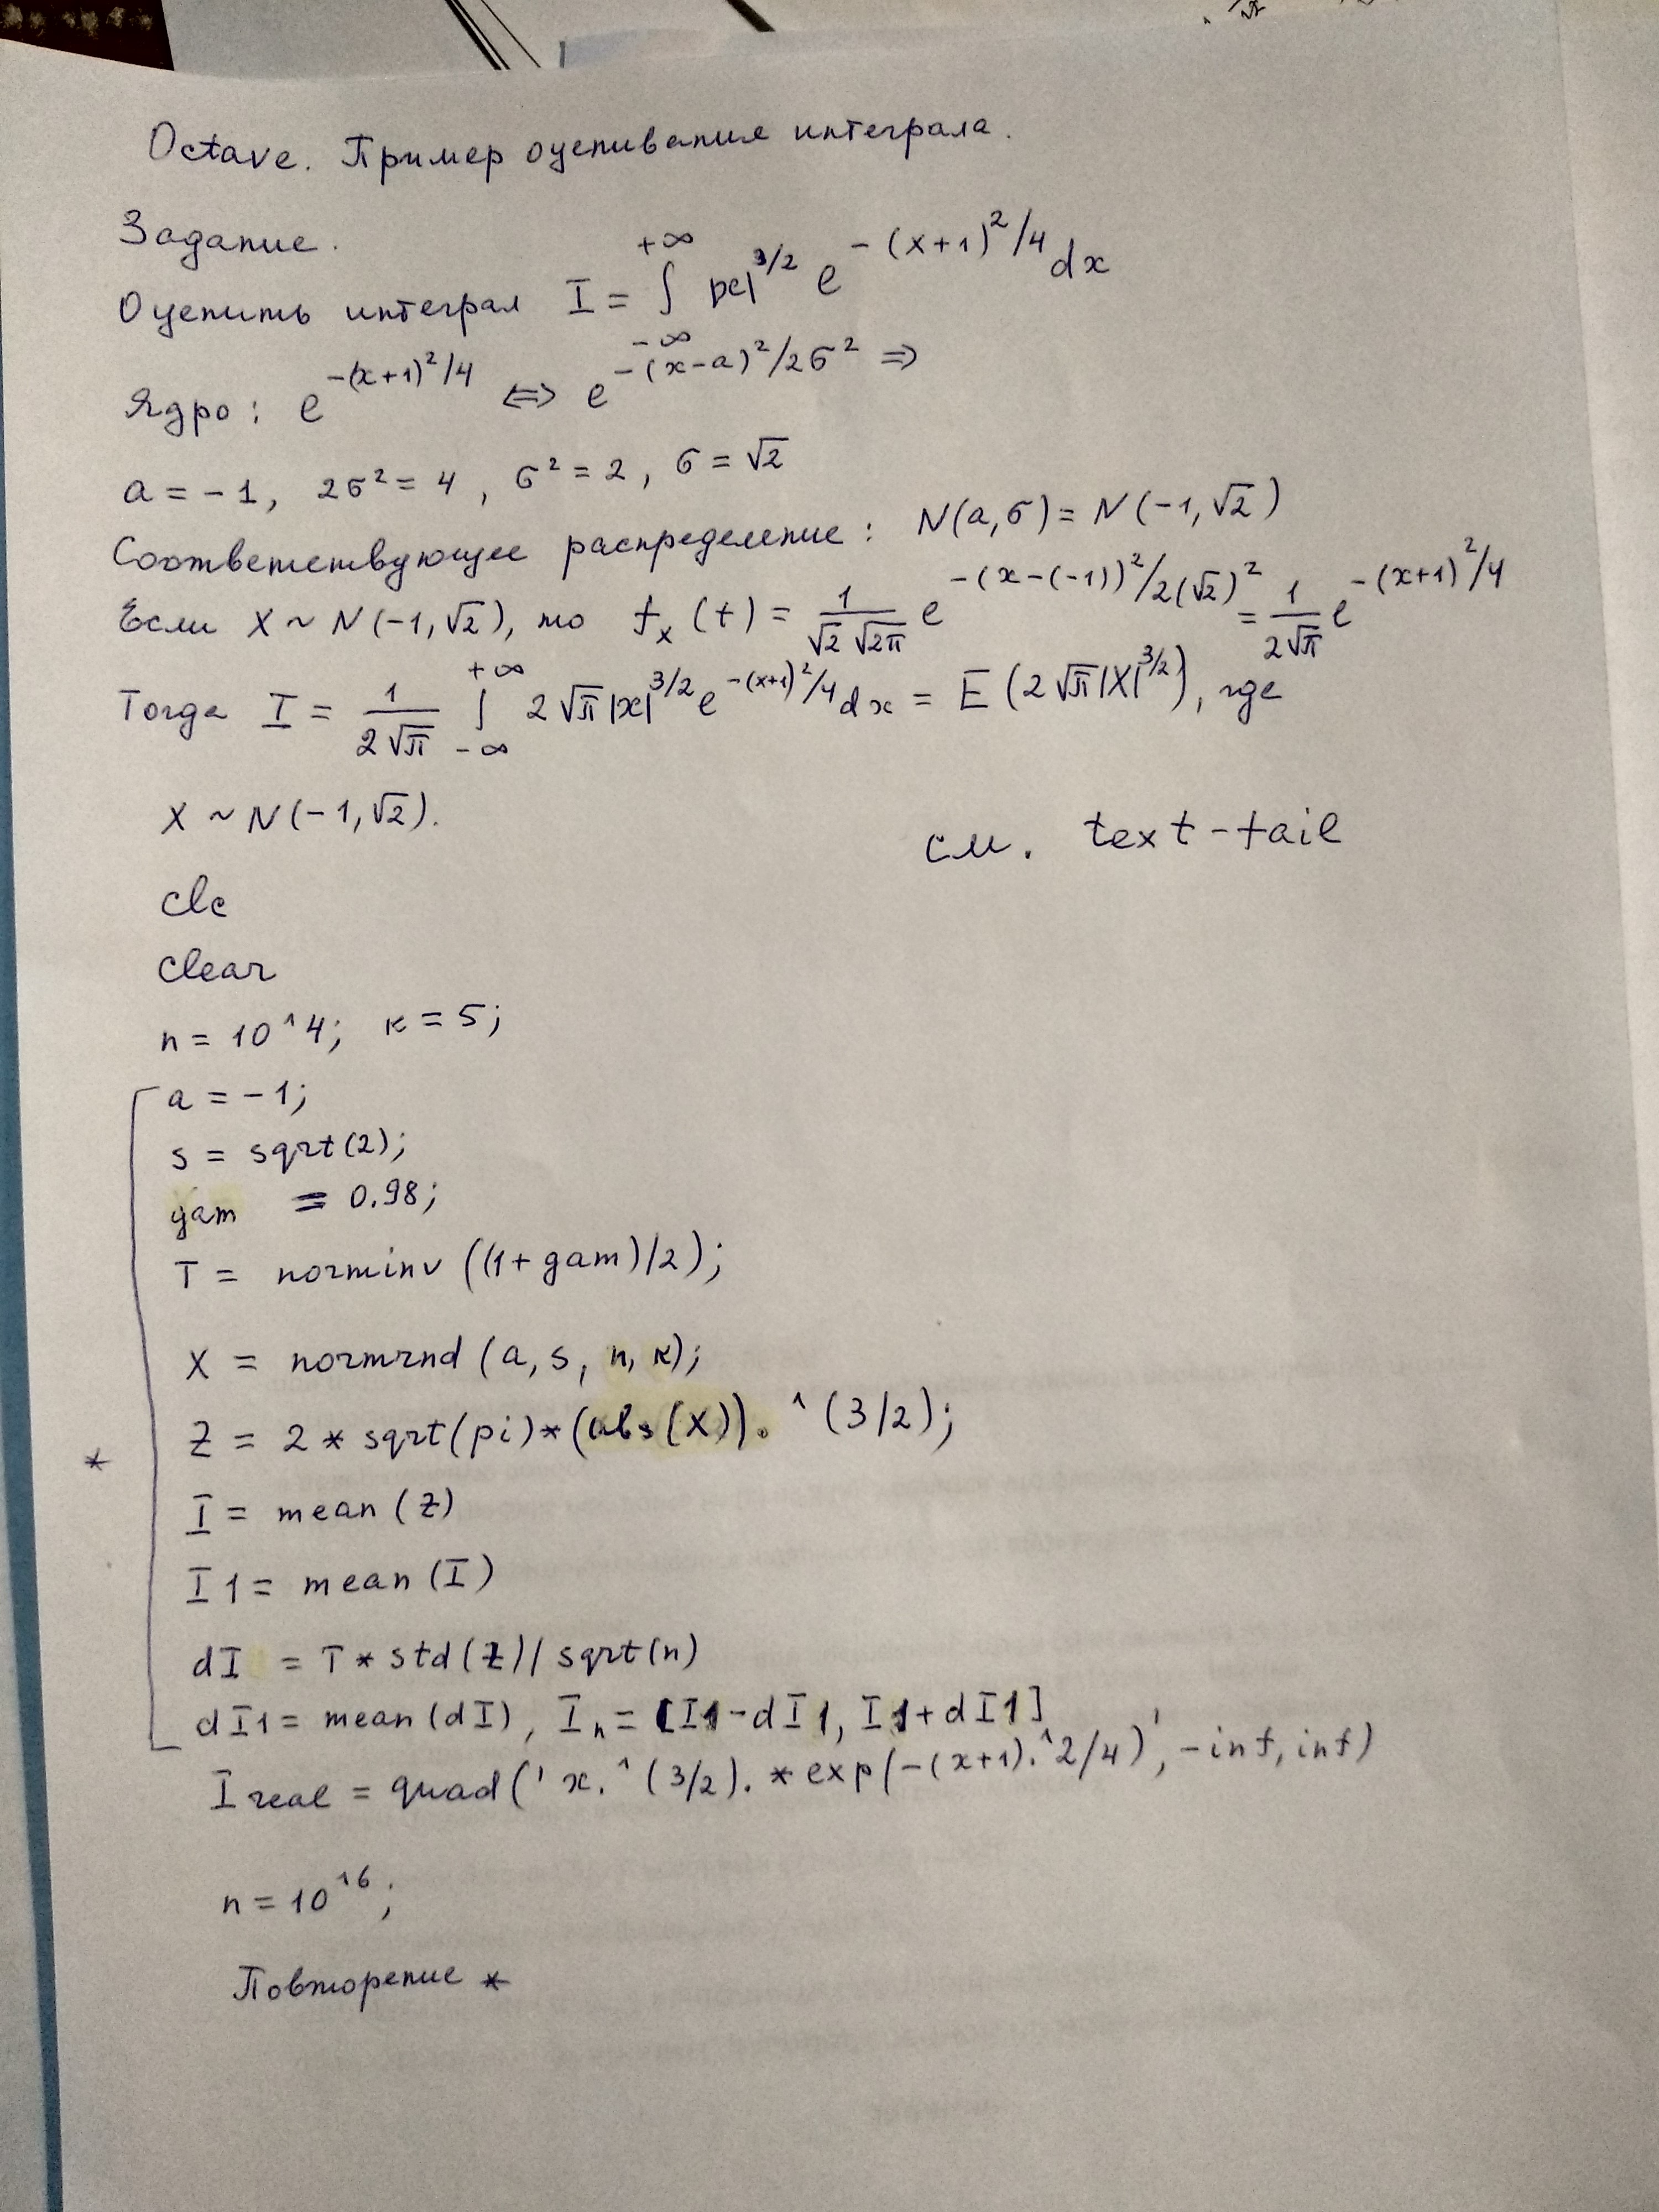 Octave. Пример оценивания интеграла.
Задание.
Оценить интеграл I = ∫_{-∞}^{+∞} |x|^{3/2} e^{-(x+1)^2/4} dx
Ядро: e^{-(x+1)^2/4} <=> e^{-(x-a)^2/2σ^2} =>
a = -1, 2σ^2 = 4, σ^2 = 2, σ = √2
Соответствующее распределение: N(a,σ) = N(-1,√2)
Если X ~ N(-1,√2), то f_x(t) = 1/(√2 √2π) e^{-(x-(-1))^2/2(√2)^2} = 1/(2√π) e^{-(x+1)^2/4}
Тогда I = 1/(2√π) ∫_{-∞}^{+∞} 2√π |x|^{3/2} e^{-(x+1)^2/4} dx = E(2√π|X|^{3/2}), где
X ~ N(-1,√2).
см. text-fail
clc
clear
n = 10^4; к = 5;
a = -1;
s = sqrt(2);
gam = 0.98;
T = norminv((1+gam)/2);
X = normrnd(a, s, n, к);
Z = 2*sqrt(pi)*(abs(X)).^(3/2);
* I = mean(Z)
I1 = mean(I)
dI = T*std(Z)/sqrt(n)
dI1 = mean(dI), I_n = [I1-dI1, I1+dI1]
Ireal = quad('x.^(3/2).*exp(-(x+1).^2/4)', -inf, inf)
n = 10^16;
Повторение *